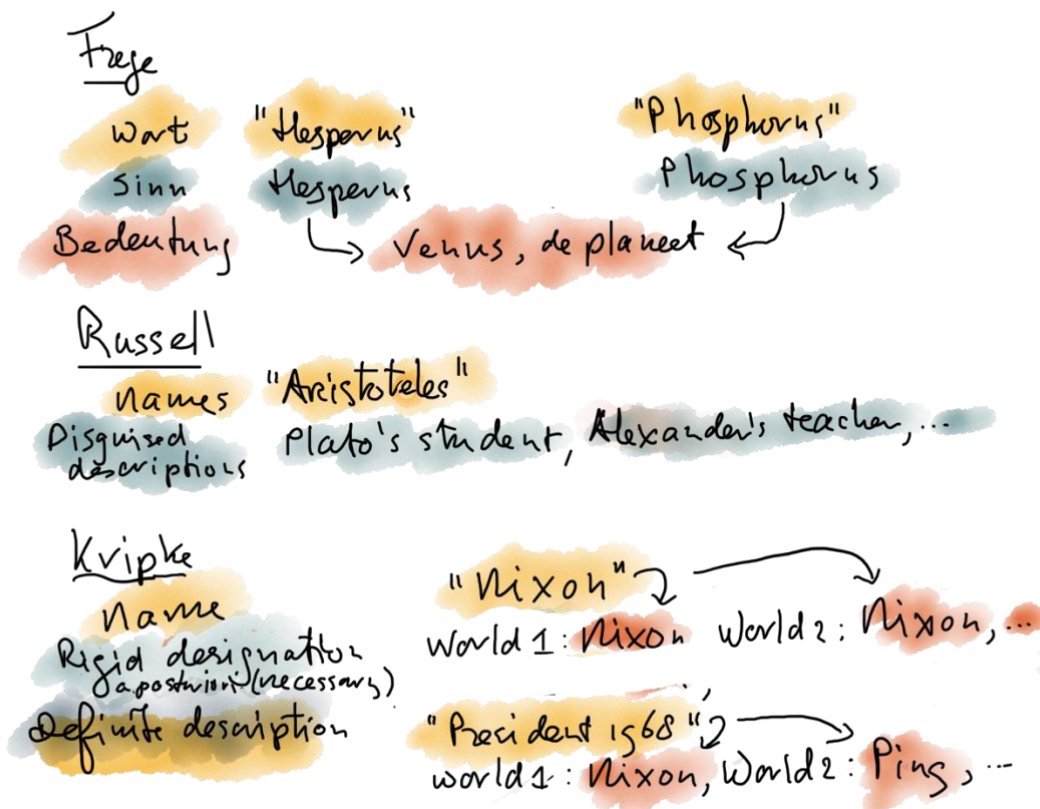 Frege
Wort "Hesperus" "Phosphorus"
Sinn Hesperus Phosphorus
Bedeutung Venus, de planeet
Russell
names "Aristoteles"
Disguised descriptions Plato's student, Alexander's teacher, ...
Kripke
Name "Nixon"
Rigid designation World 1: Nixon World 2: Nixon, ...
a posteriori (necessary)
Definite description "President 1968"
World 1: Nixon, World 2: Ping, ...